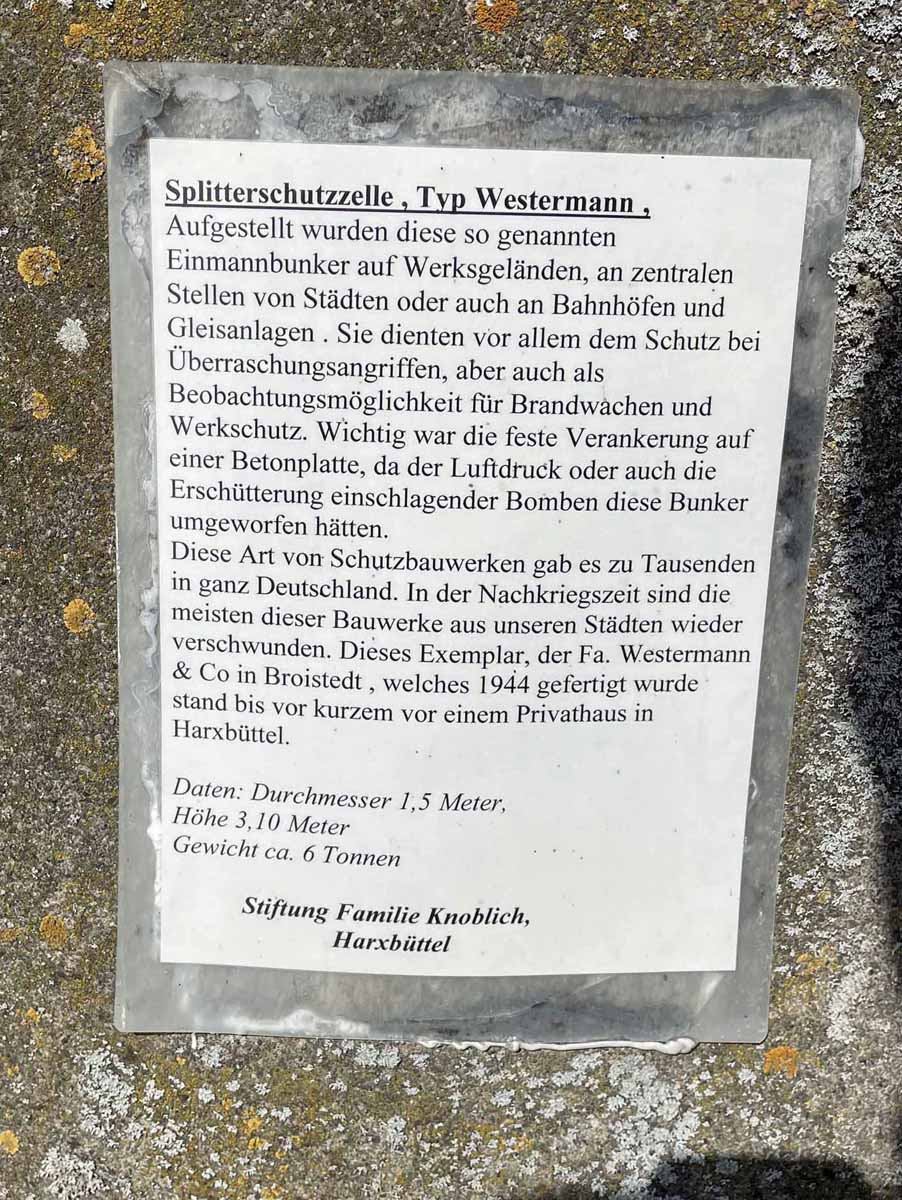 Splitterschutzzelle , Typ Westermann ,
Aufgestellt wurden diese so genannten
Einmannbunker auf Werksgeländen, an zentralen
Stellen von Städten oder auch an Bahnhöfen und
Gleisanlagen . Sie dienten vor allem dem Schutz bei
Überraschungsangriffen, aber auch als
Beobachtungsmöglichkeit für Brandwachen und
Werkschutz. Wichtig war die feste Verankerung auf
einer Betonplatte, da der Luftdruck oder auch die
Erschütterung einschlagender Bomben diese Bunker
umgeworfen hätten.
Diese Art von Schutzbauwerken gab es zu Tausenden
in ganz Deutschland. In der Nachkriegszeit sind die
meisten dieser Bauwerke aus unseren Städten wieder
verschwunden. Dieses Exemplar, der Fa. Westermann
& Co in Broistedt , welches 1944 gefertigt wurde
stand bis vor kurzem vor einem Privathaus in
Harxbüttel.
Daten: Durchmesser 1,5 Meter,
Höhe 3,10 Meter
Gewicht ca. 6 Tonnen
Stiftung Familie Knoblich,
Harxbüttel